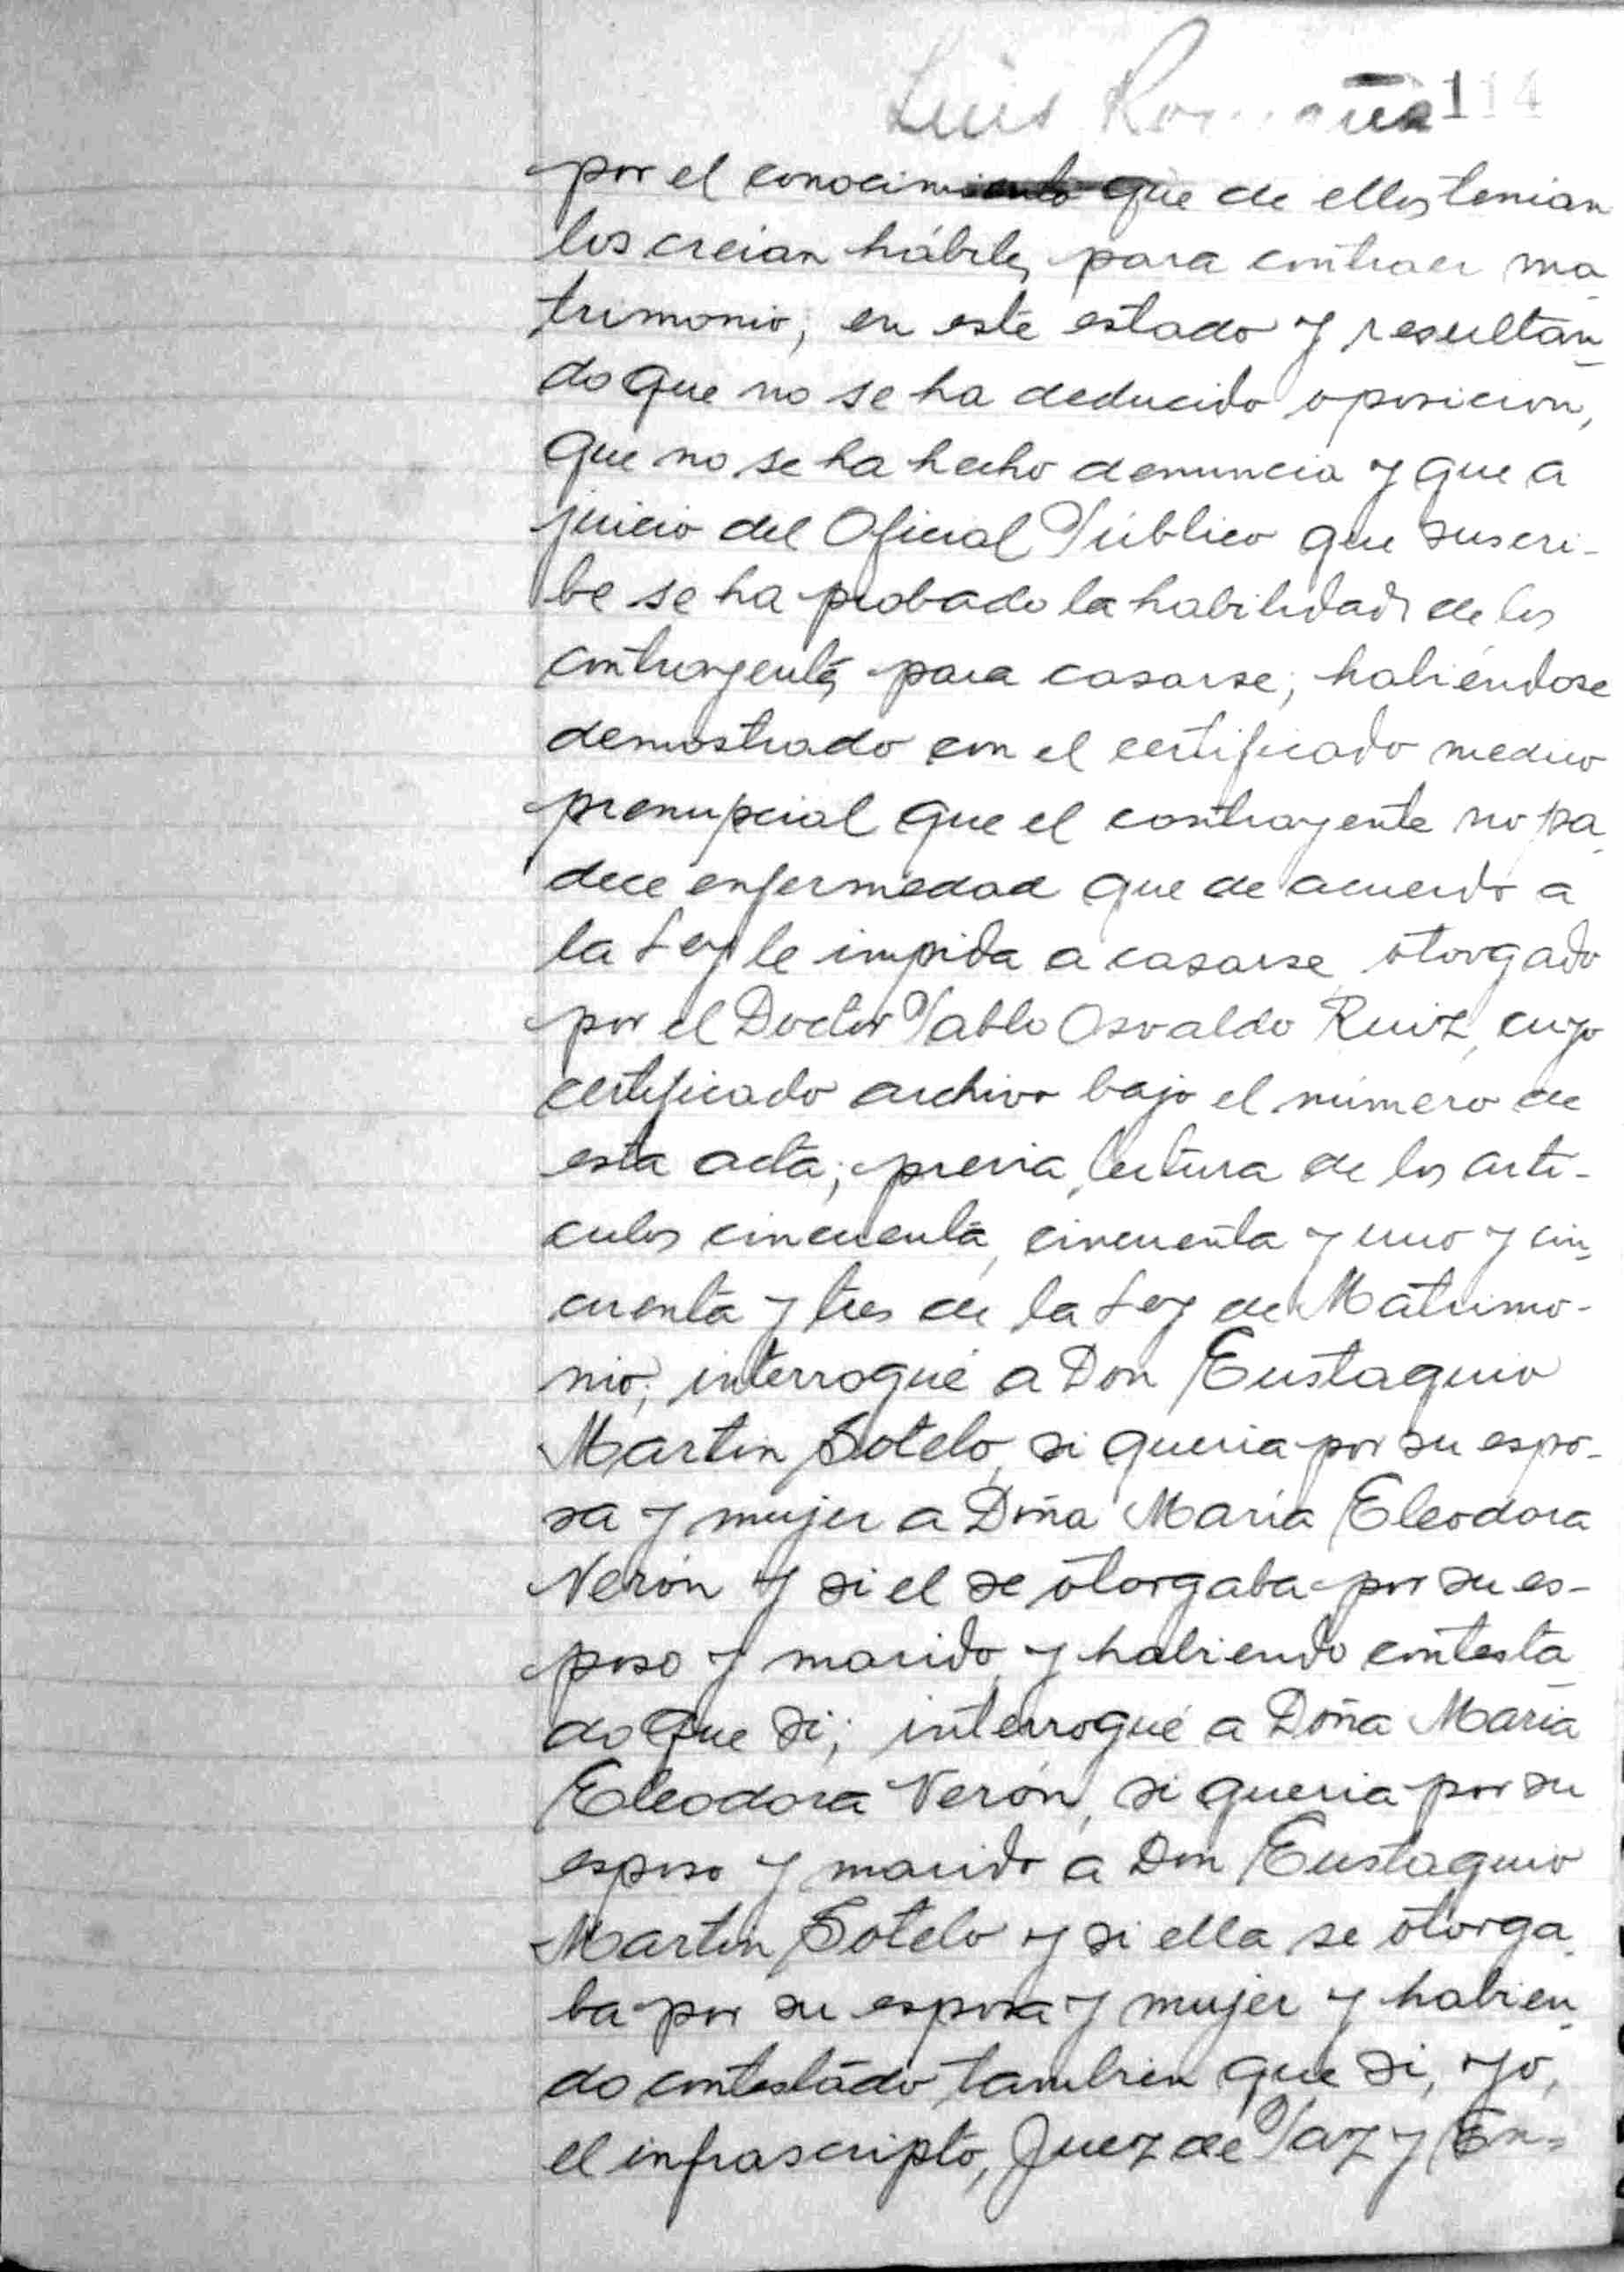 Luis Romaña 114
por el conocimiento que de ellos tenian
los creian hábiles para contraer ma
trimonio; en este estado y resultan
do que no se ha deducido oposicion,
que no se ha hecho denuncia y que a
juicio del Oficial Público que suscri-
be se ha probado la habilidad de los
contrayentes para casarse; habiéndose
demostrado con el certificado medico
prenupcial que el contrayente no pa
dece enfermedad que de acuerdo a
la Ley le impida a casarse, otorgado
por el Doctor Pablo Osvaldo Ruiz, cuyo
certificado archivo bajo el número de
esta acta; previa lectura de los arti-
culos cincuenta, cincuenta y uno y cin
cuenta y tres de la Ley de Matrimo-
nio, interrogué a Don Eustaquio
Martin Sotelo, si queria por su espo-
sa y mujer a Doña María Eleodora
Verón y si el se otorgaba por su es-
poso y marido, y habiendo contesta
do que si; interrogué a Doña María
Eleodora Verón, si queria por su
esposo y marido a Don Eustaquio
Martin Sotelo y si ella se otorga
ba por su esposa y mujer y habien
do contestado tambien que si, yo,
el infrascripto, Juez de Paz y En=